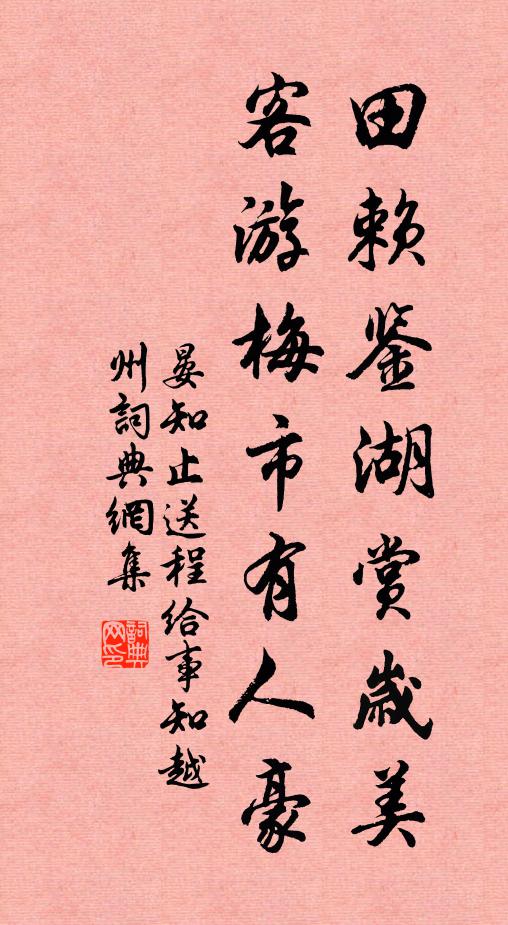 田赖鉴湖赏岁美
客游梅市有人豪
晏知止送程给事知越
州詞典網集
詞典網印